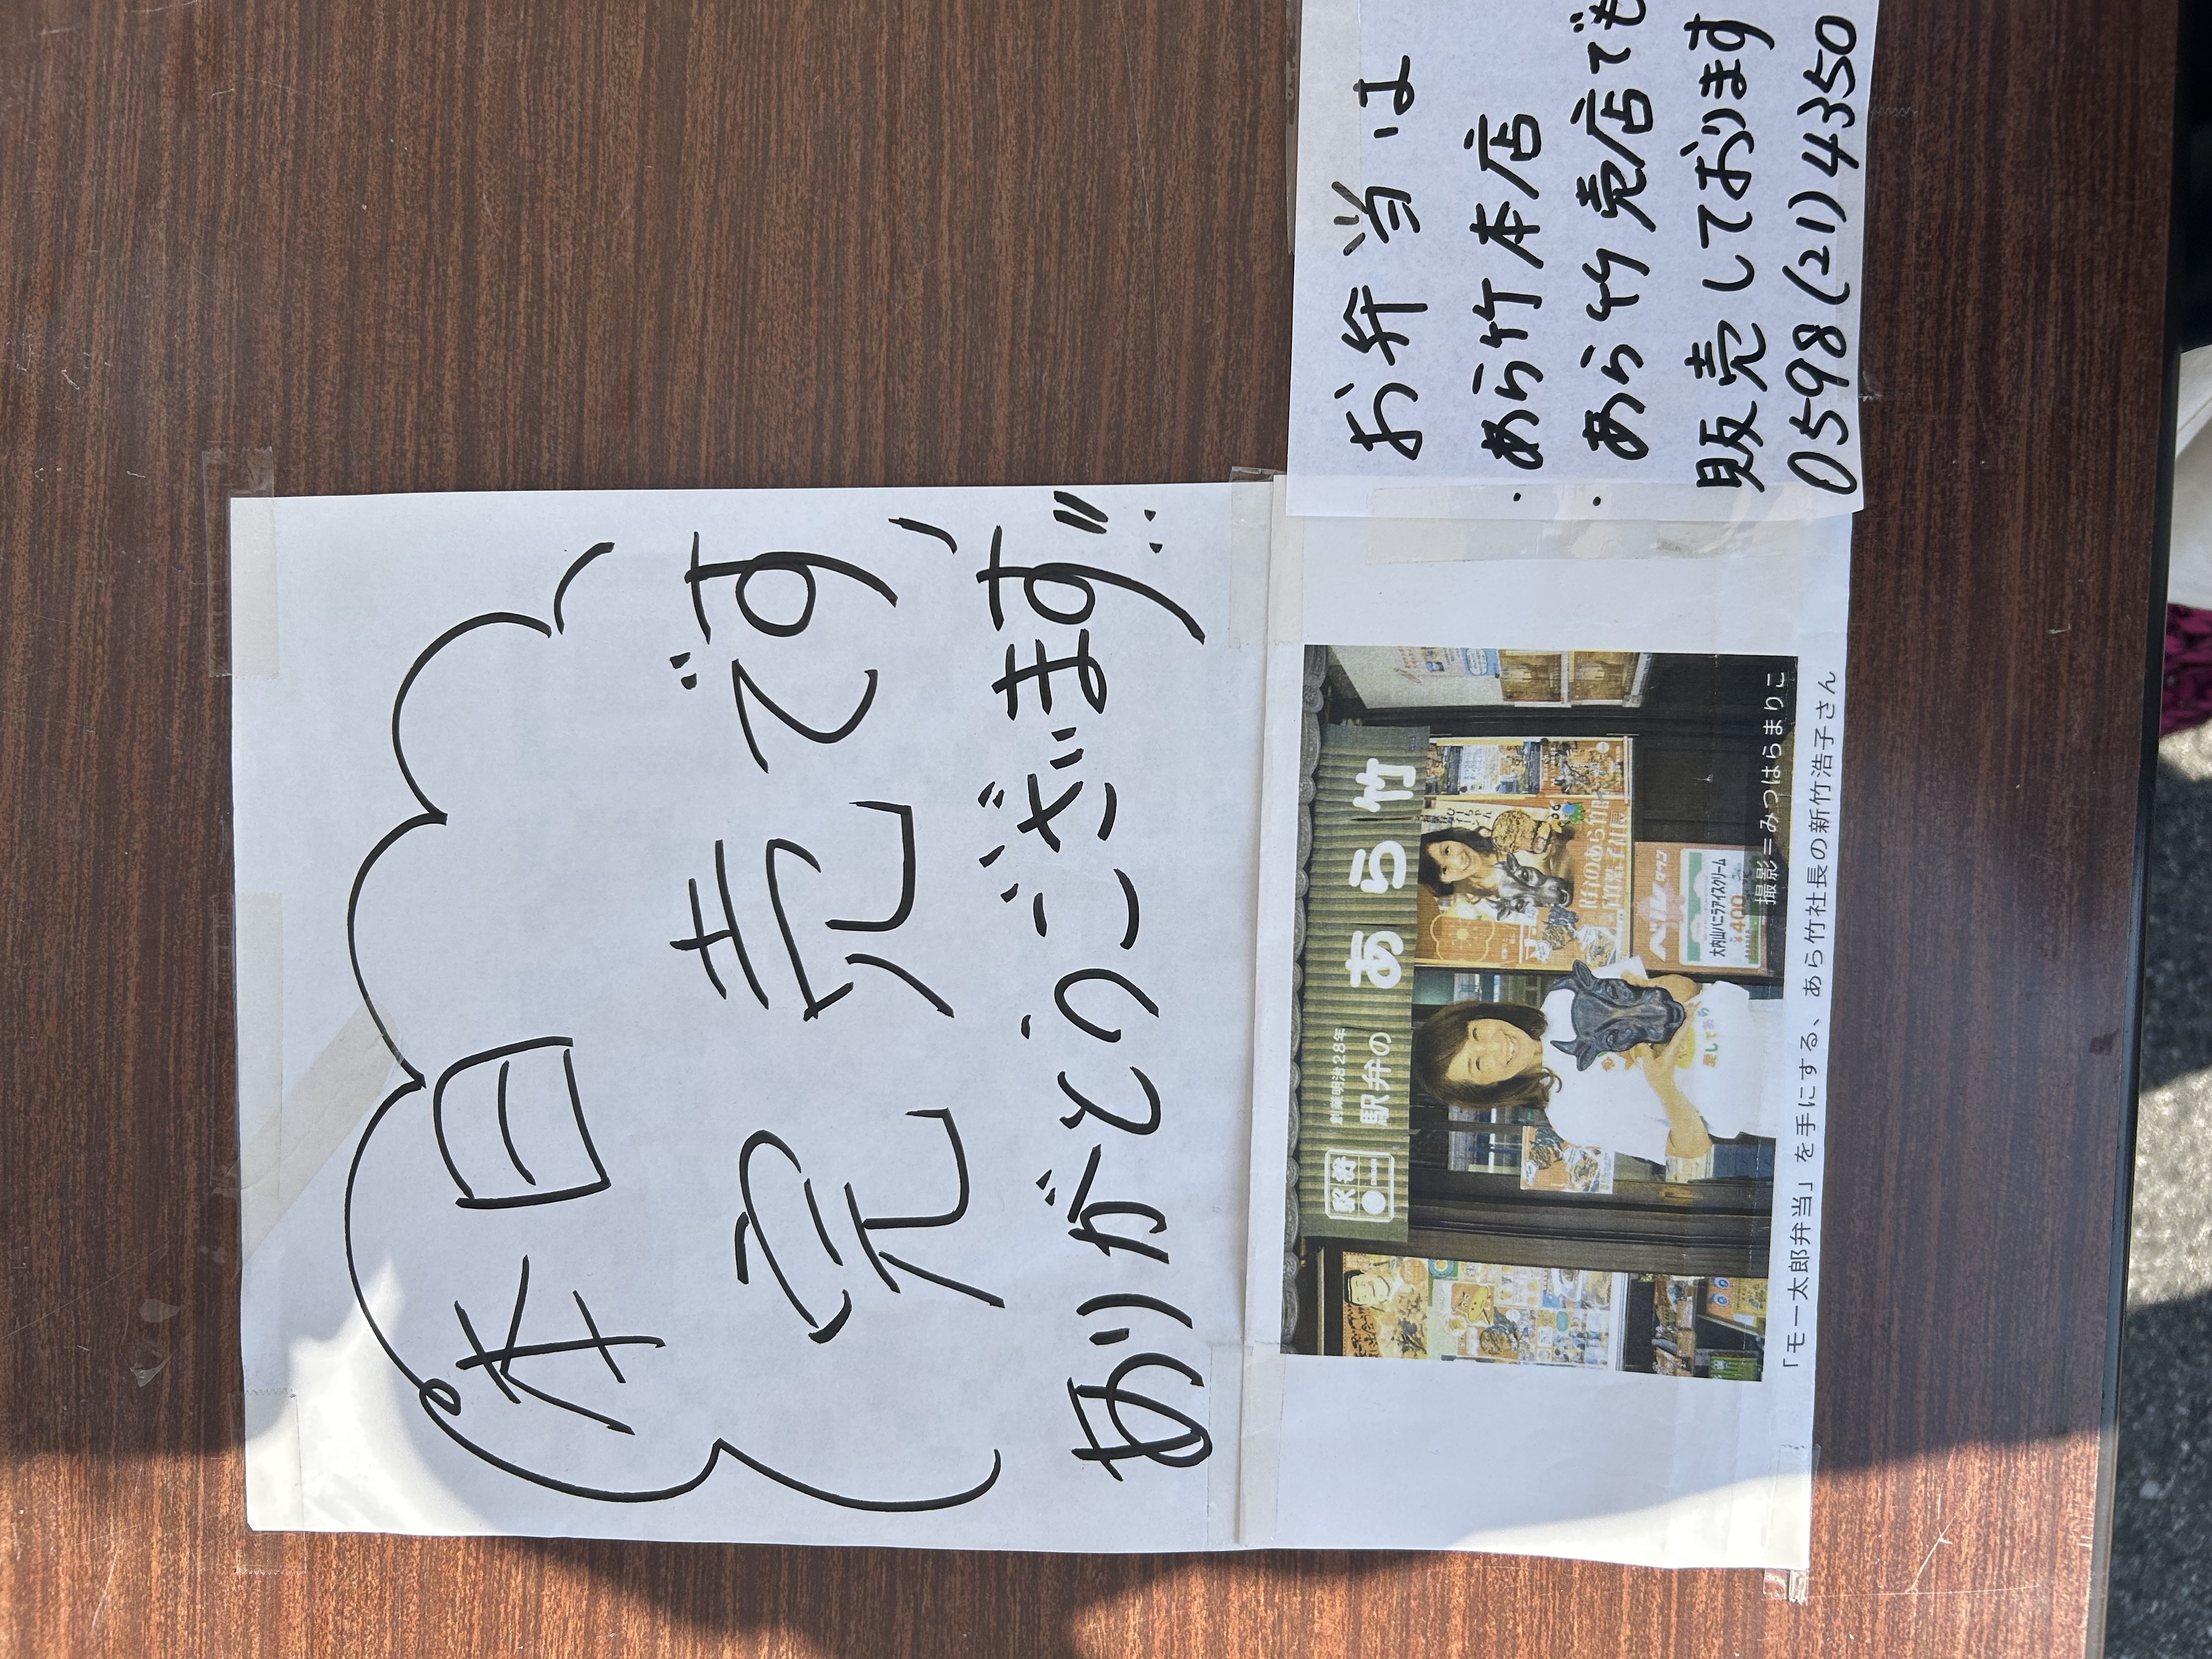 本日
完売です
ありがとうございます!!
お弁当は
・あら竹本店
・あら竹売店でも
販売しております
0598(21)4350
創業明治28年
駅弁の あら竹
駅弁
ベルタウン
大内山バニラアイスクリーム
¥400
愛してあら
撮影=みつはらまりこ
「モー太郎弁当」を手にする、あら竹社長の新竹浩子さん